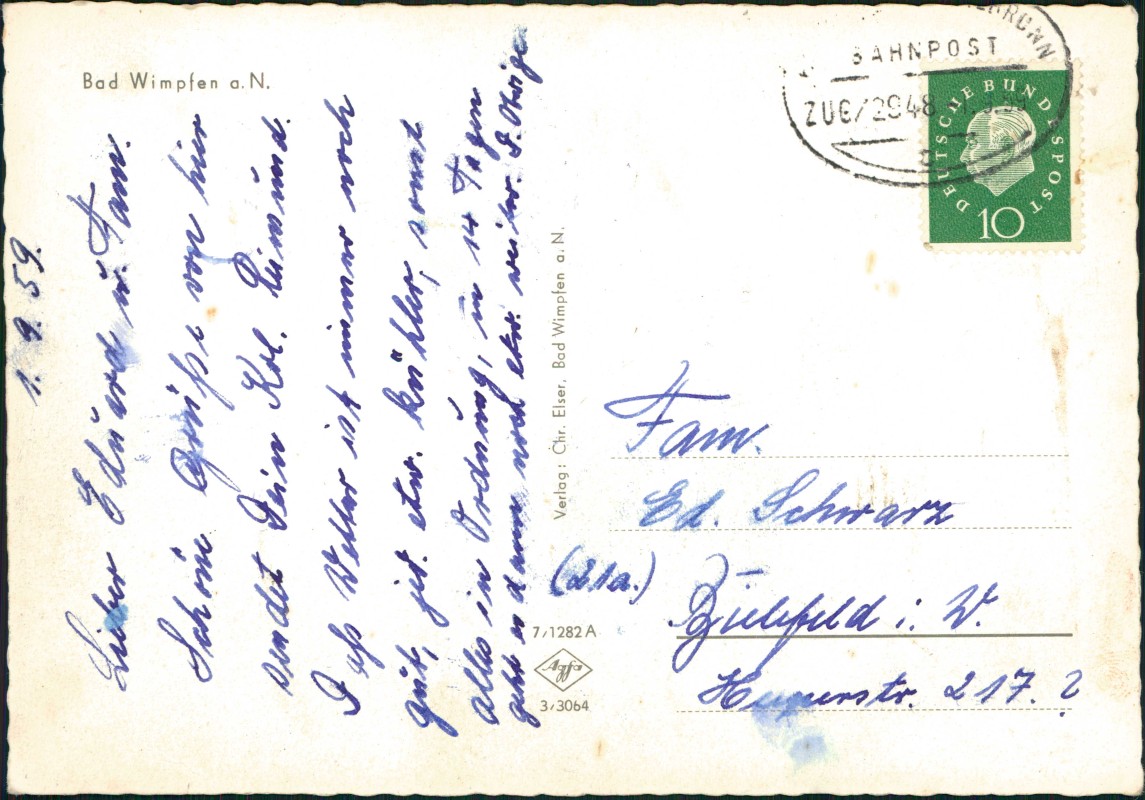 Bad Wimpfen a.N.
1. 9. 59.
Lieber Eduard u. Fam.
Schöne Grüße von hier
sendet Dein Kol.
Das Wetter ist immer noch
gut, jed. etw. kühler, sonst
alles in Ordnung, in 14 Tagen
geht es dann noch etw. weiter
Verlag: Chr. Elser, Bad Wimpfen a. N.
7/1282 A
Agfa
3/3064
BRONN
BAHNPOST
ZUG/2948
DEUTSCHE BUNDESPOST
10
Fam.
Ed. Schwarz
(21a.)
Bielefeld i. W.
217. ?